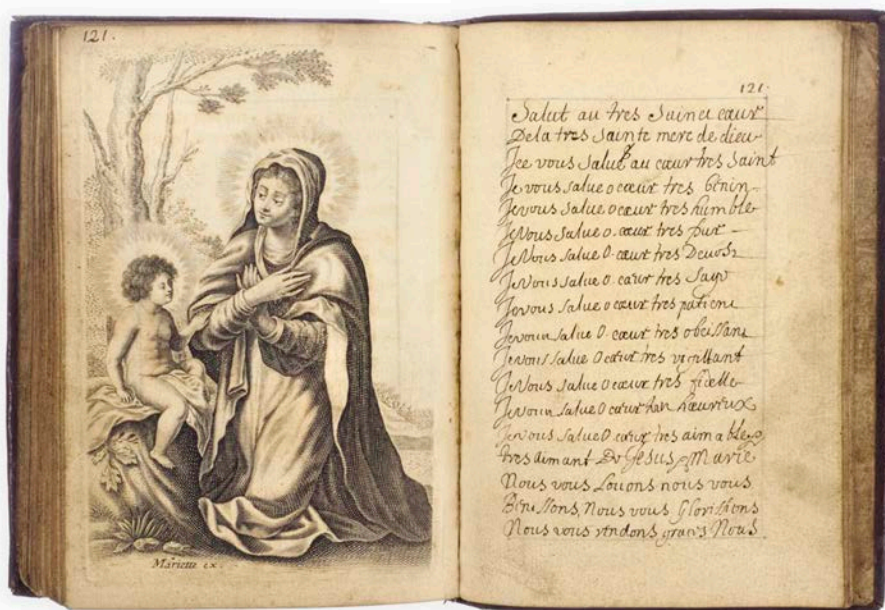 121.
Mariette ex.
121.
Salut au tres Sainct cœur
De la tres Sainte mere de dieu
Je vous Salue au cœur tres Saint
Je vous Salue o cœur tres benin
Je vous Salue o cœur tres humble
Je Vous Salue O cœur tres pur
Je Vous Salue O cœur tres Devost
Je Vous Salue O cœur tres Sage
Je vous Salue o cœur tres patient
Je vous Salue O cœur tres obeissant
Je vous Salue O cœur tres vigillant
Je Vous Salue o cœur tres fidelle
Je vous Salue O cœur hœureux
Je vous Salue O cœur tres aimable
tres aimant De Jesus Marie
Nous vous Louons nous vous
Benissons Nous vous Glorifions
Nous vous rendons graces Nous